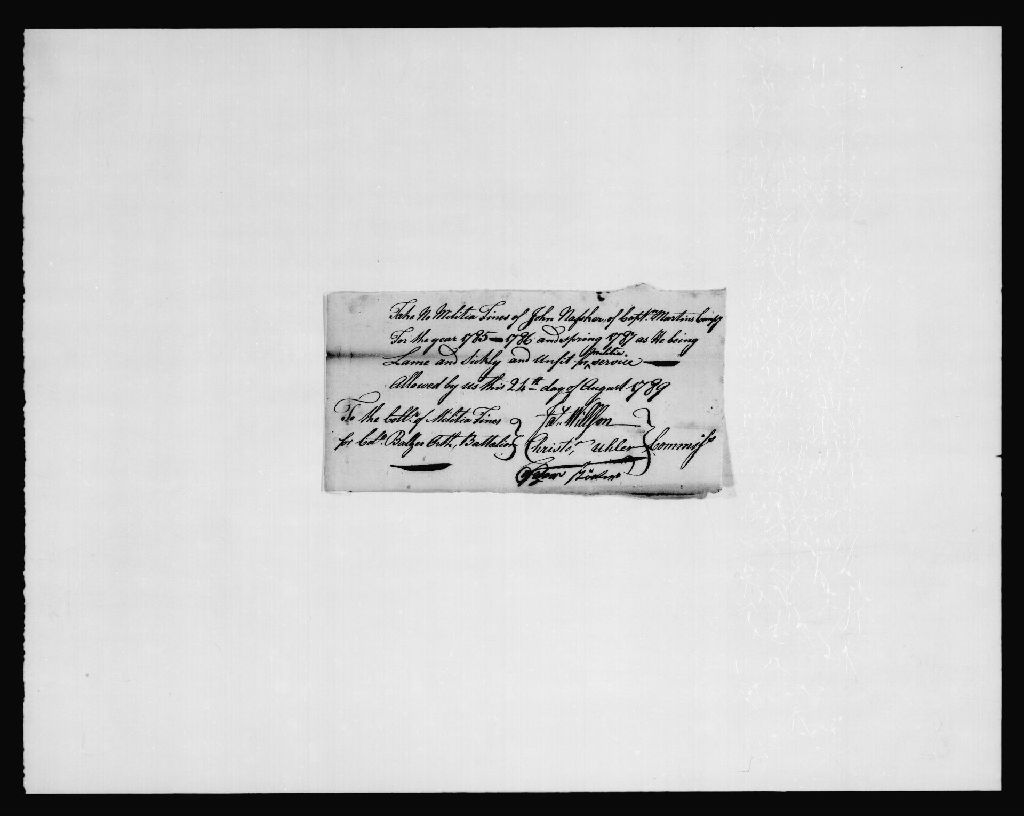 Take No Melitia Fines of John Nassher, of Capt. Martins Compy
For the year 1785 — 1786 and spring 1787 as He being
Lame and Sickly and Unfit for Militia service —
Allowed by us this 24th day of August 1789
To the Collr. of Melitia Fines
for Coln. Balzer Orth, Battalion
Js. Willson
Christr. Uhler
Commissrs